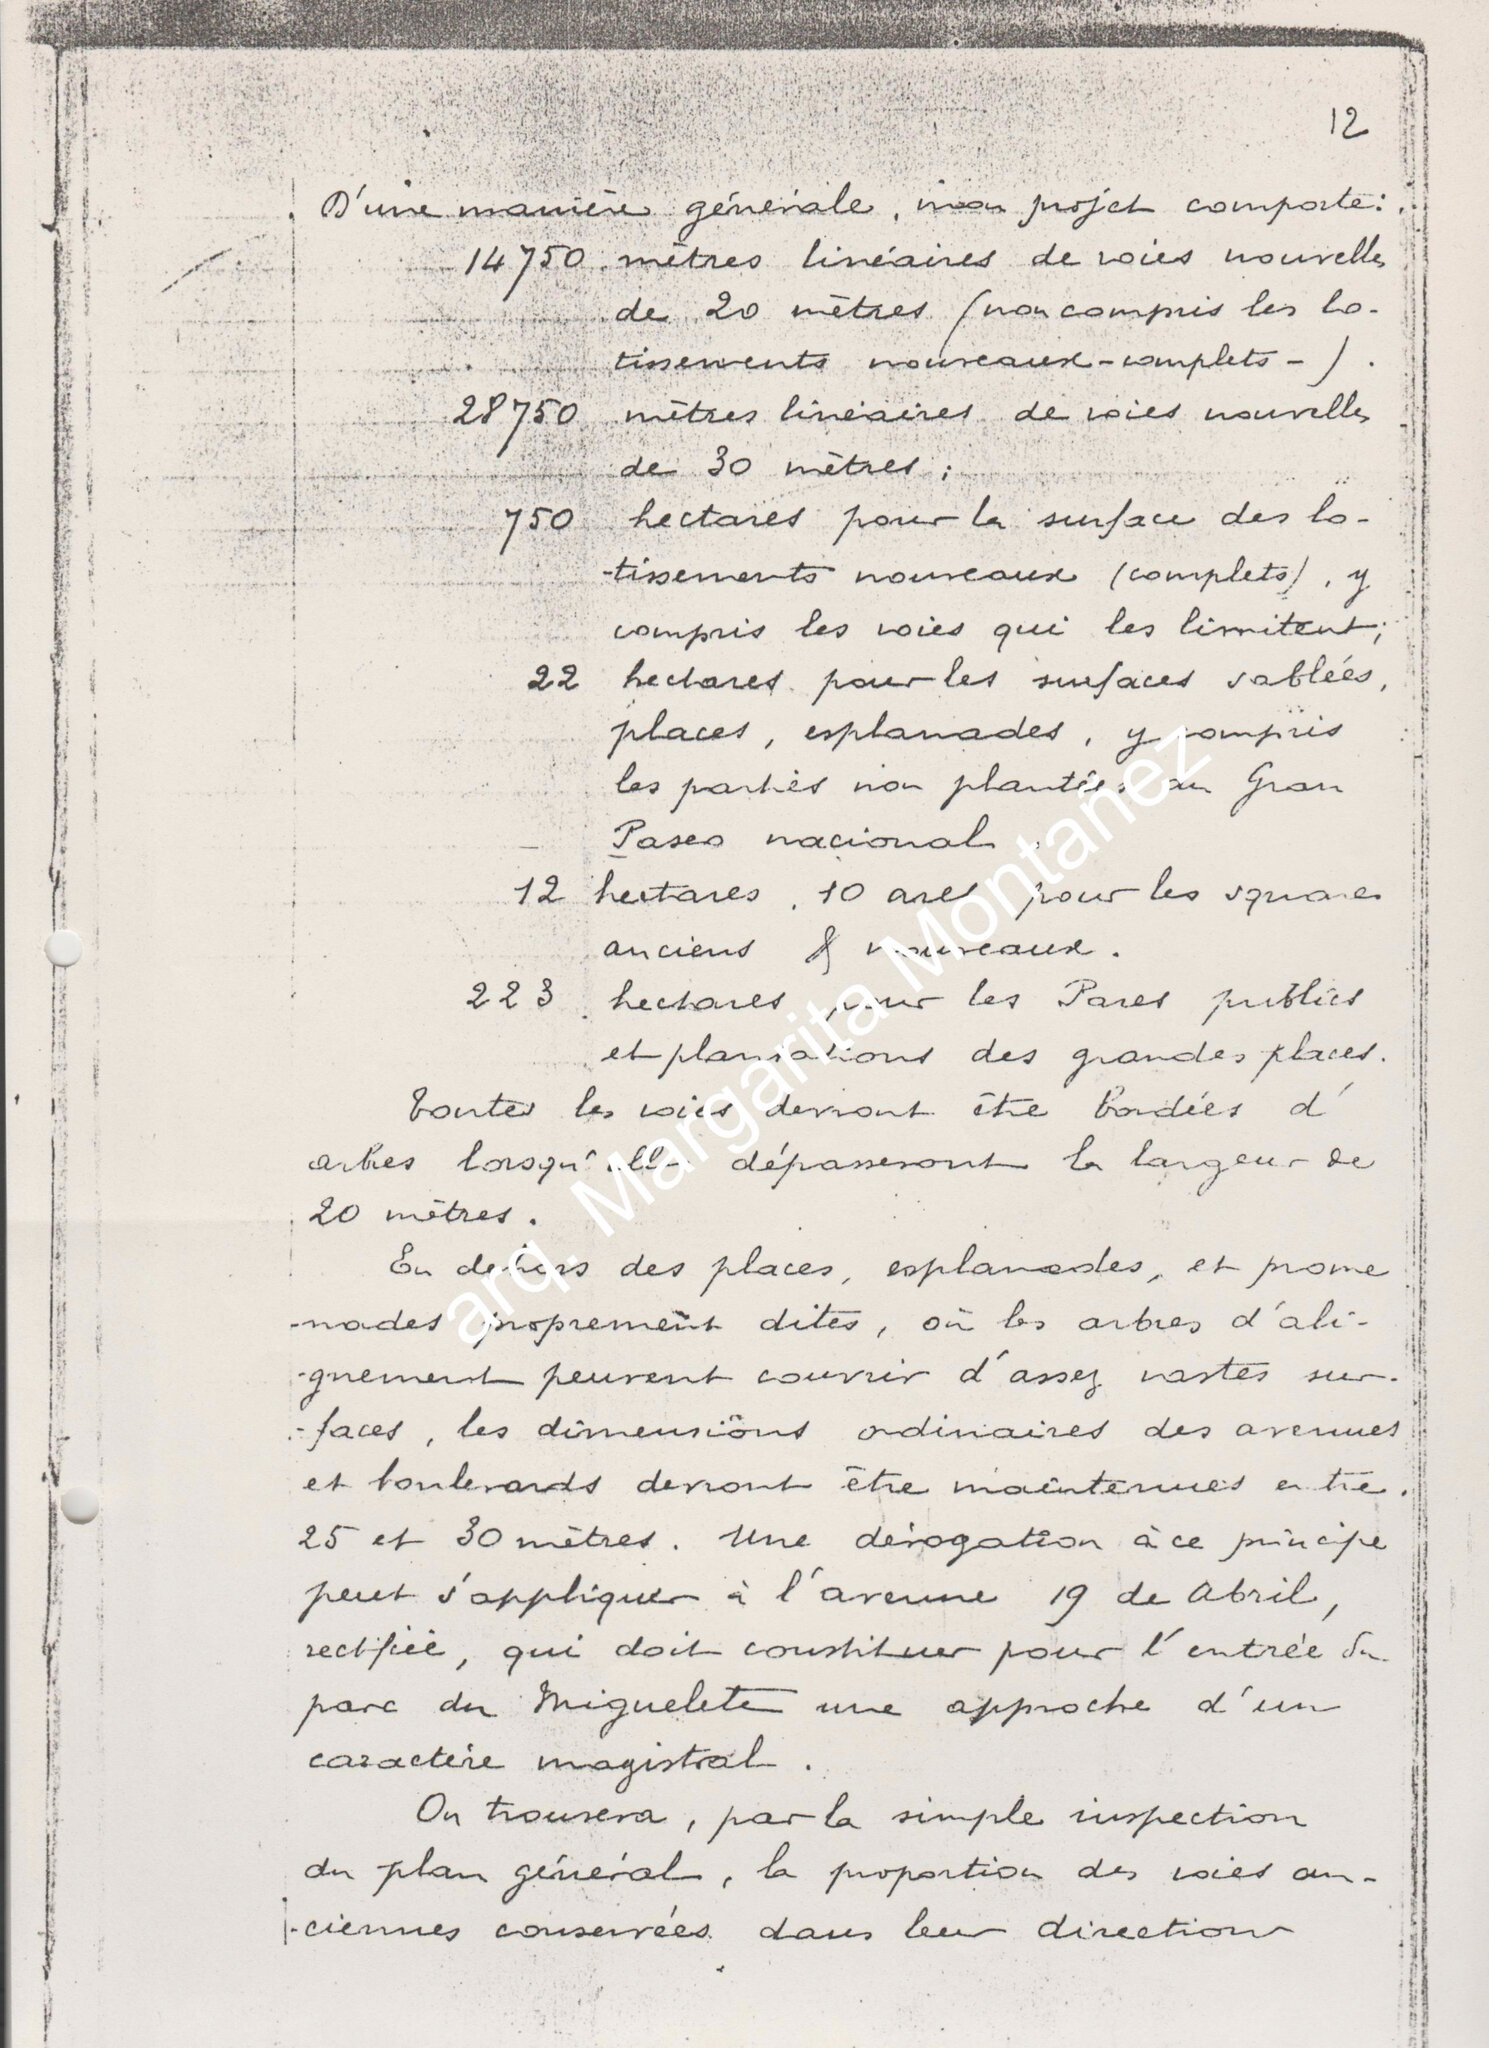 12
D'une manière générale, mon projet comporte:
14750 mètres linéaires de voies nouvelles
de 20 mètres (non compris les lo-
tissements nouveaux-complets-).
28750 mètres linéaires de voies nouvelles
de 30 mètres;
750 hectares pour la surface des lo-
-tissements nouveaux (complets), y
compris les voies qui les limitent;
22 hectares pour les surfaces sablées,
places, esplanades, y compris
les parties non plantées au Gran
Paseo nacional.
12 hectares, 10 ares pour les squares
anciens & nouveaux.
223 hectares pour les Parcs publics
et plantations des grandes places.
Toutes les voies devront être bordées d'
arbres lorsqu'elles dépasseront la largeur de
20 mètres.
En dehors des places, esplanades, et prome
-nades proprement dites, où les arbres d'ali-
-gnement peuvent couvrir d'assez vastes sur-
-faces, les dimensions ordinaires des avenues
et boulevards devront être maintenues entre
25 et 30 mètres. Une dérogation à ce principe
peut s'appliquer à l'avenue 19 de Abril,
rectifiée, qui doit constituer pour l'entrée du
parc du Miguelete une approche d'un
caractère magistral.
On trouvera, par la simple inspection
du plan général, la proportion des voies an-
-ciennes conservées dans leur direction
arq. Margarita Montañez